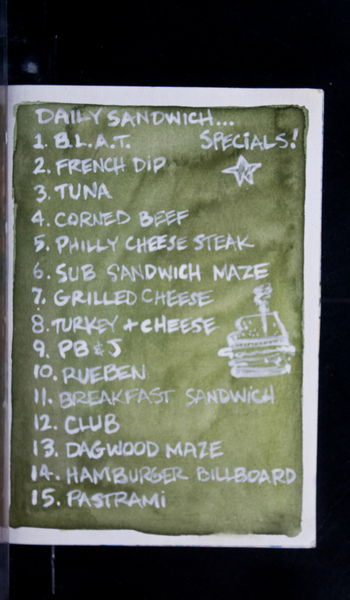 DAILY SANDWICH...
SPECIALS!
1. B.L.A.T.
2. FRENCH DIP
3. TUNA
4. CORNED BEEF
5. PHILLY CHEESE STEAK
6. SUB SANDWICH MAZE
7. GRILLED CHEESE
8. TURKEY + CHEESE
9. PB & J
10. RUEBEN
11. BREAKFAST SANDWICH
12. CLUB
13. DAGWOOD MAZE
14. HAMBURGER BILLBOARD
15. PASTRAMi